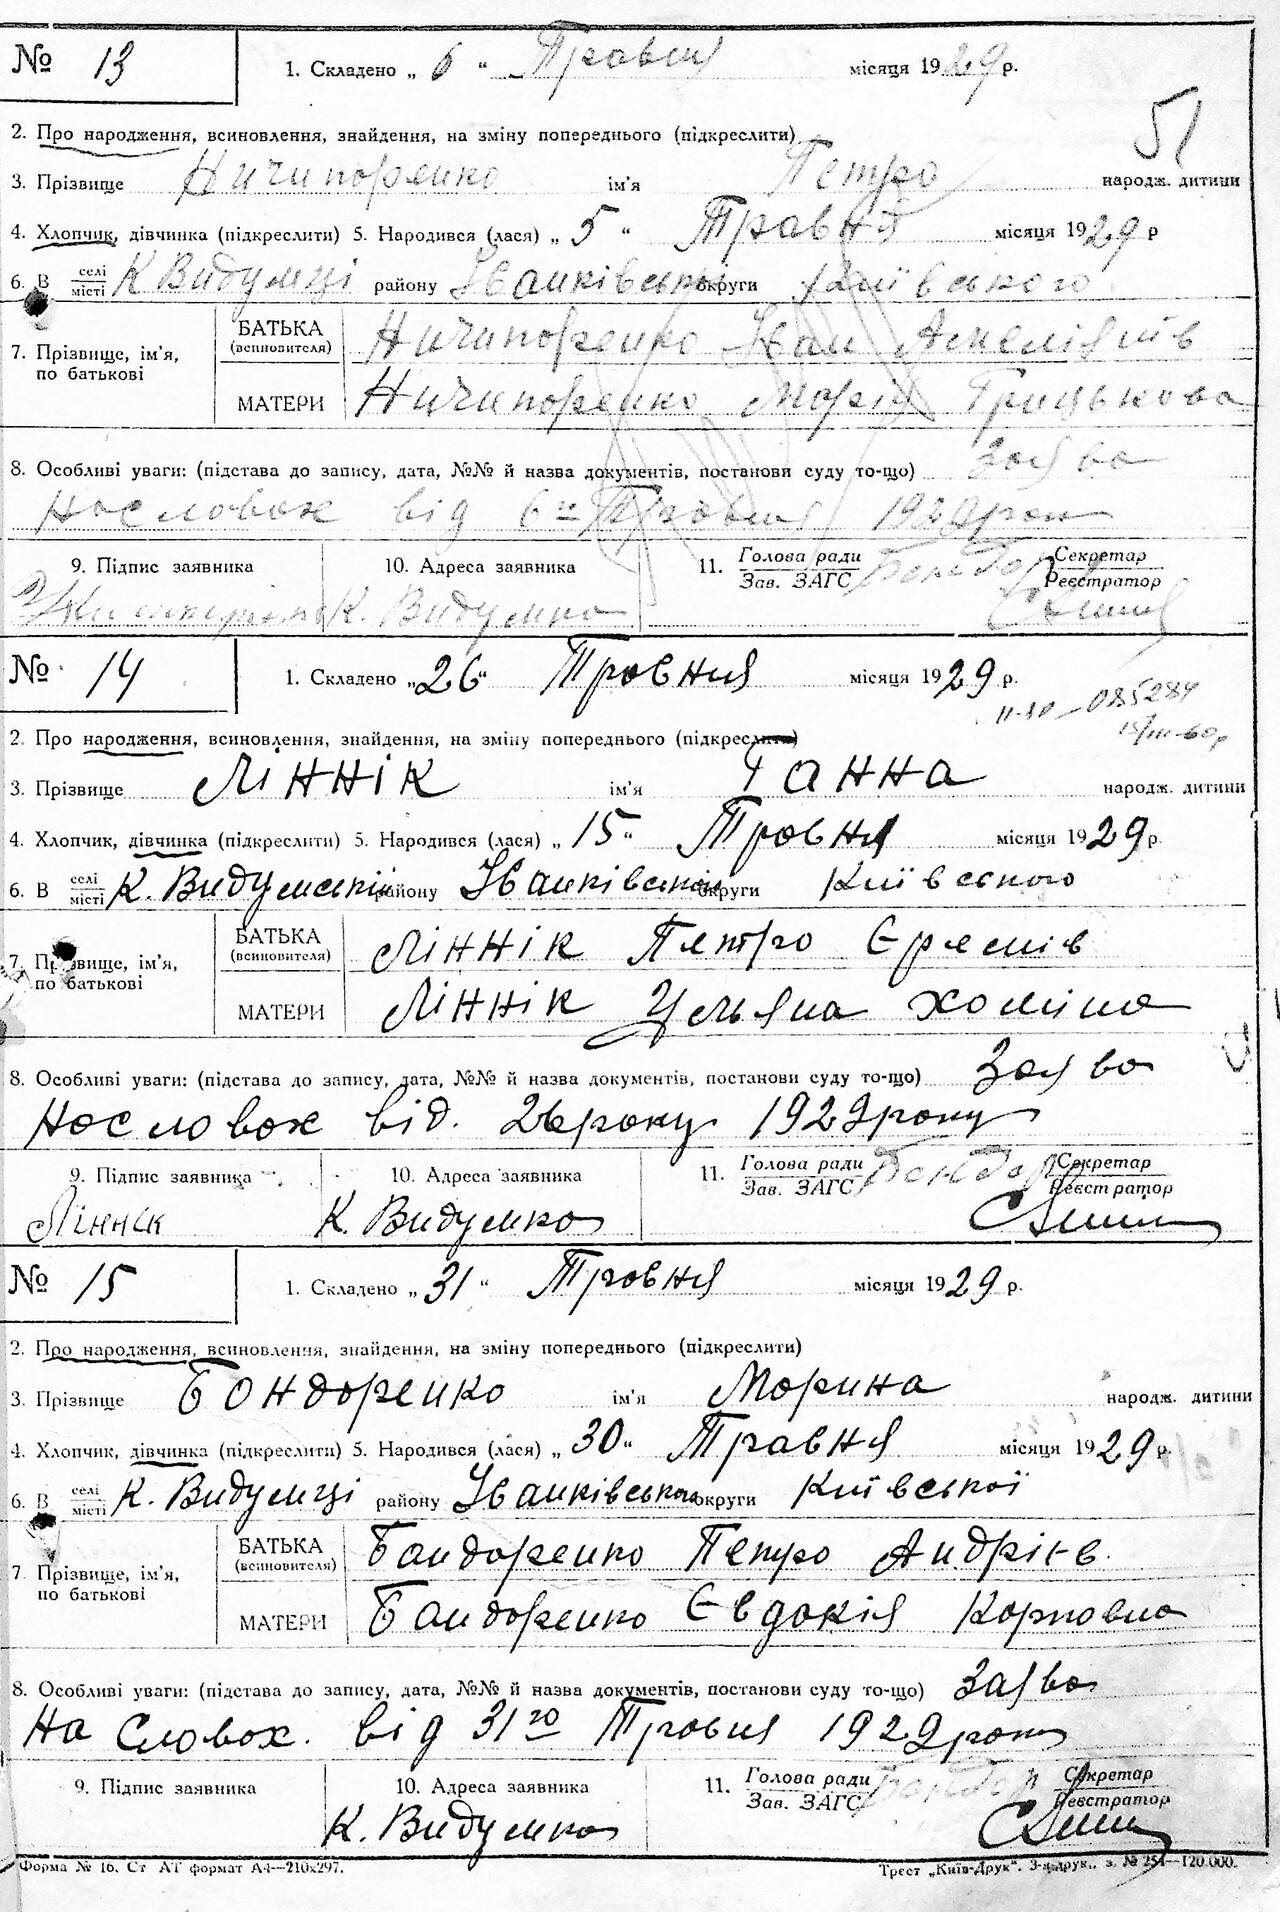 № 13
1. Складено „ 6 “ Травня місяця 1929 р.
51
2. Про народження, всиновлення, знайдення, на зміну попереднього (підкреслити)
3. Прізвище Ничипоренко ім'я Петро народж. дитини
4. Хлопчик, дівчинка (підкреслити) 5. Народився (лася) „ 5 “ Травня місяця 1929 р
6. В селі місті К Видумці району Іванківськ округи Київського
7. Прізвище, ім'я, по батькові
БАТЬКА (всиновителя) Ничипоренко Іван Амеліянів
МАТЕРИ Ничипоренко Марія Грицькова
8. Особливі уваги: (підстава до запису, дата, №№ й назва документів, постанови суду то-що) Заява
На словах від 6го Травня 1929 рок
9. Підпис заявника 10. Адреса заявника 11. Голова ради Зав. ЗАГС Бондар Секретар Реєстратор
К. Видумка
№ 14
1. Складено „26“ Травня місяця 1929 р.
085284
15/III-60р
2. Про народження, всиновлення, знайдення, на зміну попереднього (підкреслити)
3. Прізвище Ліннік ім'я Ганна народж. дитини
4. Хлопчик, дівчинка (підкреслити) 5. Народився (лася) „ 15 “ Травня місяця 1929 р
6. В селі місті К. Видумській району Іванківської округи Київського
7. Прізвище, ім'я, по батькові
БАТЬКА (всиновителя) Ліннік Петро Єремів
МАТЕРИ Ліннік Ульяна Хоміна
8. Особливі уваги: (підстава до запису, дата, №№ й назва документів, постанови суду то-що) Заява
На словах від. 26 року 1929 року
9. Підпис заявника 10. Адреса заявника 11. Голова ради Зав. ЗАГС Бондар Секретар Реєстратор
Ліннік К. Видумка
№ 15
1. Складено „ 31 “ Травня місяця 1929 р.
2. Про народження, всиновлення, знайдення, на зміну попереднього (підкреслити)
3. Прізвище Бондоренко ім'я Марина народж. дитини
4. Хлопчик, дівчинка (підкреслити) 5. Народився (лася) „ 30 “ Травня місяця 1929 р.
6. В селі місті К. Видумці району Іванківського округи Київської
7. Прізвище, ім'я, по батькові
БАТЬКА (всиновителя) Бандоренко Петро Андріїв.
МАТЕРИ Бандоренко Євдокія Карповна
8. Особливі уваги: (підстава до запису, дата, №№ й назва документів, постанови суду то-що) Заява
На словах. від 31го Травня 1929 рок
9. Підпис заявника 10. Адреса заявника 11. Голова ради Зав. ЗАГС Бондар Секретар Реєстратор
К. Видумка
Форма № 16. Ст АТ формат А4—210х297. Трест „Київ-Друк“. 3-я друк., з. № 254—120.000.